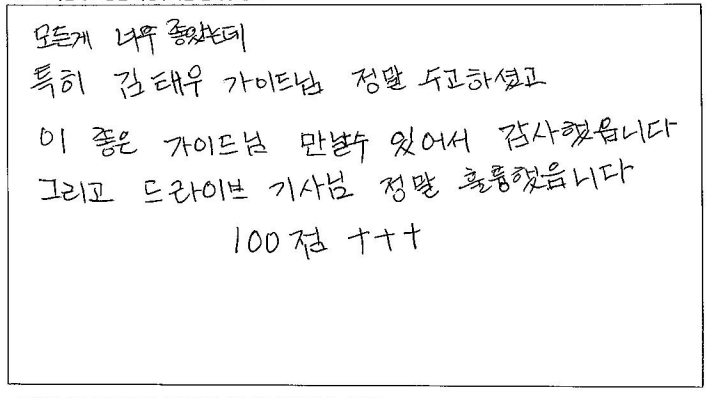 모든게 너무 좋았는데
특히 김태우 가이드님 정말 수고하셨고
이 좋은 가이드님 만날수 있어서 감사했읍니다
그리고 드라이브 기사님 정말 훌륭했읍니다
100점 +++